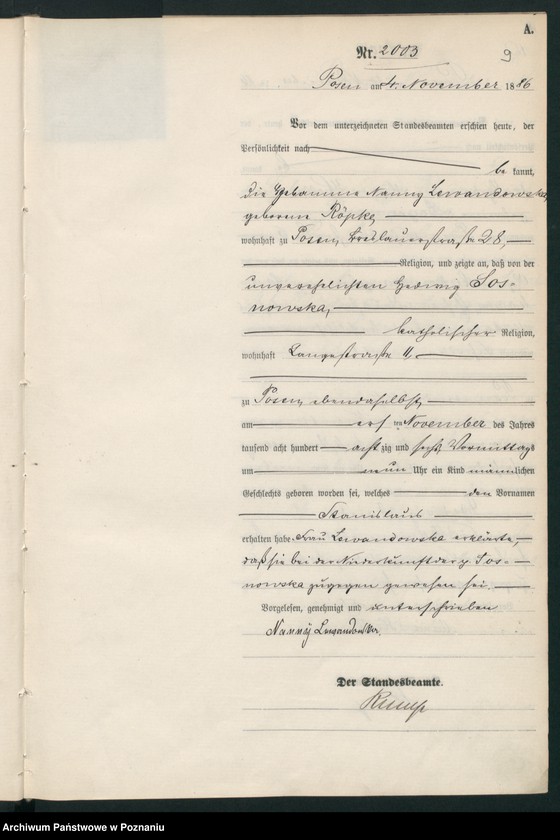 A.
9
Nr. 2003
Posen am 4. November 1886
Vor dem unterzeichneten Standesbeamten erschien heute, der
Persönlichkeit nach
be kannt,
die Hebamme Nanny Lewandowska,
geborene Röpke,
wohnhaft zu Posen, Breslauerstraße 28,
Religion, und zeigte an, daß von der
unverehelichten Hedwig Sos-
nowska,
katholischer Religion,
wohnhaft Langestraße 11,
zu Posen, ebendaselbst,
am ersten November des Jahres
tausend acht hundert acht zig und sechs Vormittags
um neun Uhr ein Kind männlichen
Geschlechts geboren worden sei, welches den Vornamen
Stanislaus
erhalten habe. Frau Lewandowska erklärte,
daß sie bei der Niederkunft der p. Sos-
nowska zugegen gewesen sei.
Vorgelesen, genehmigt und unterschrieben
Nanny Lewandowska.
Der Standesbeamte.
Archiwum Państwowe w Poznaniu